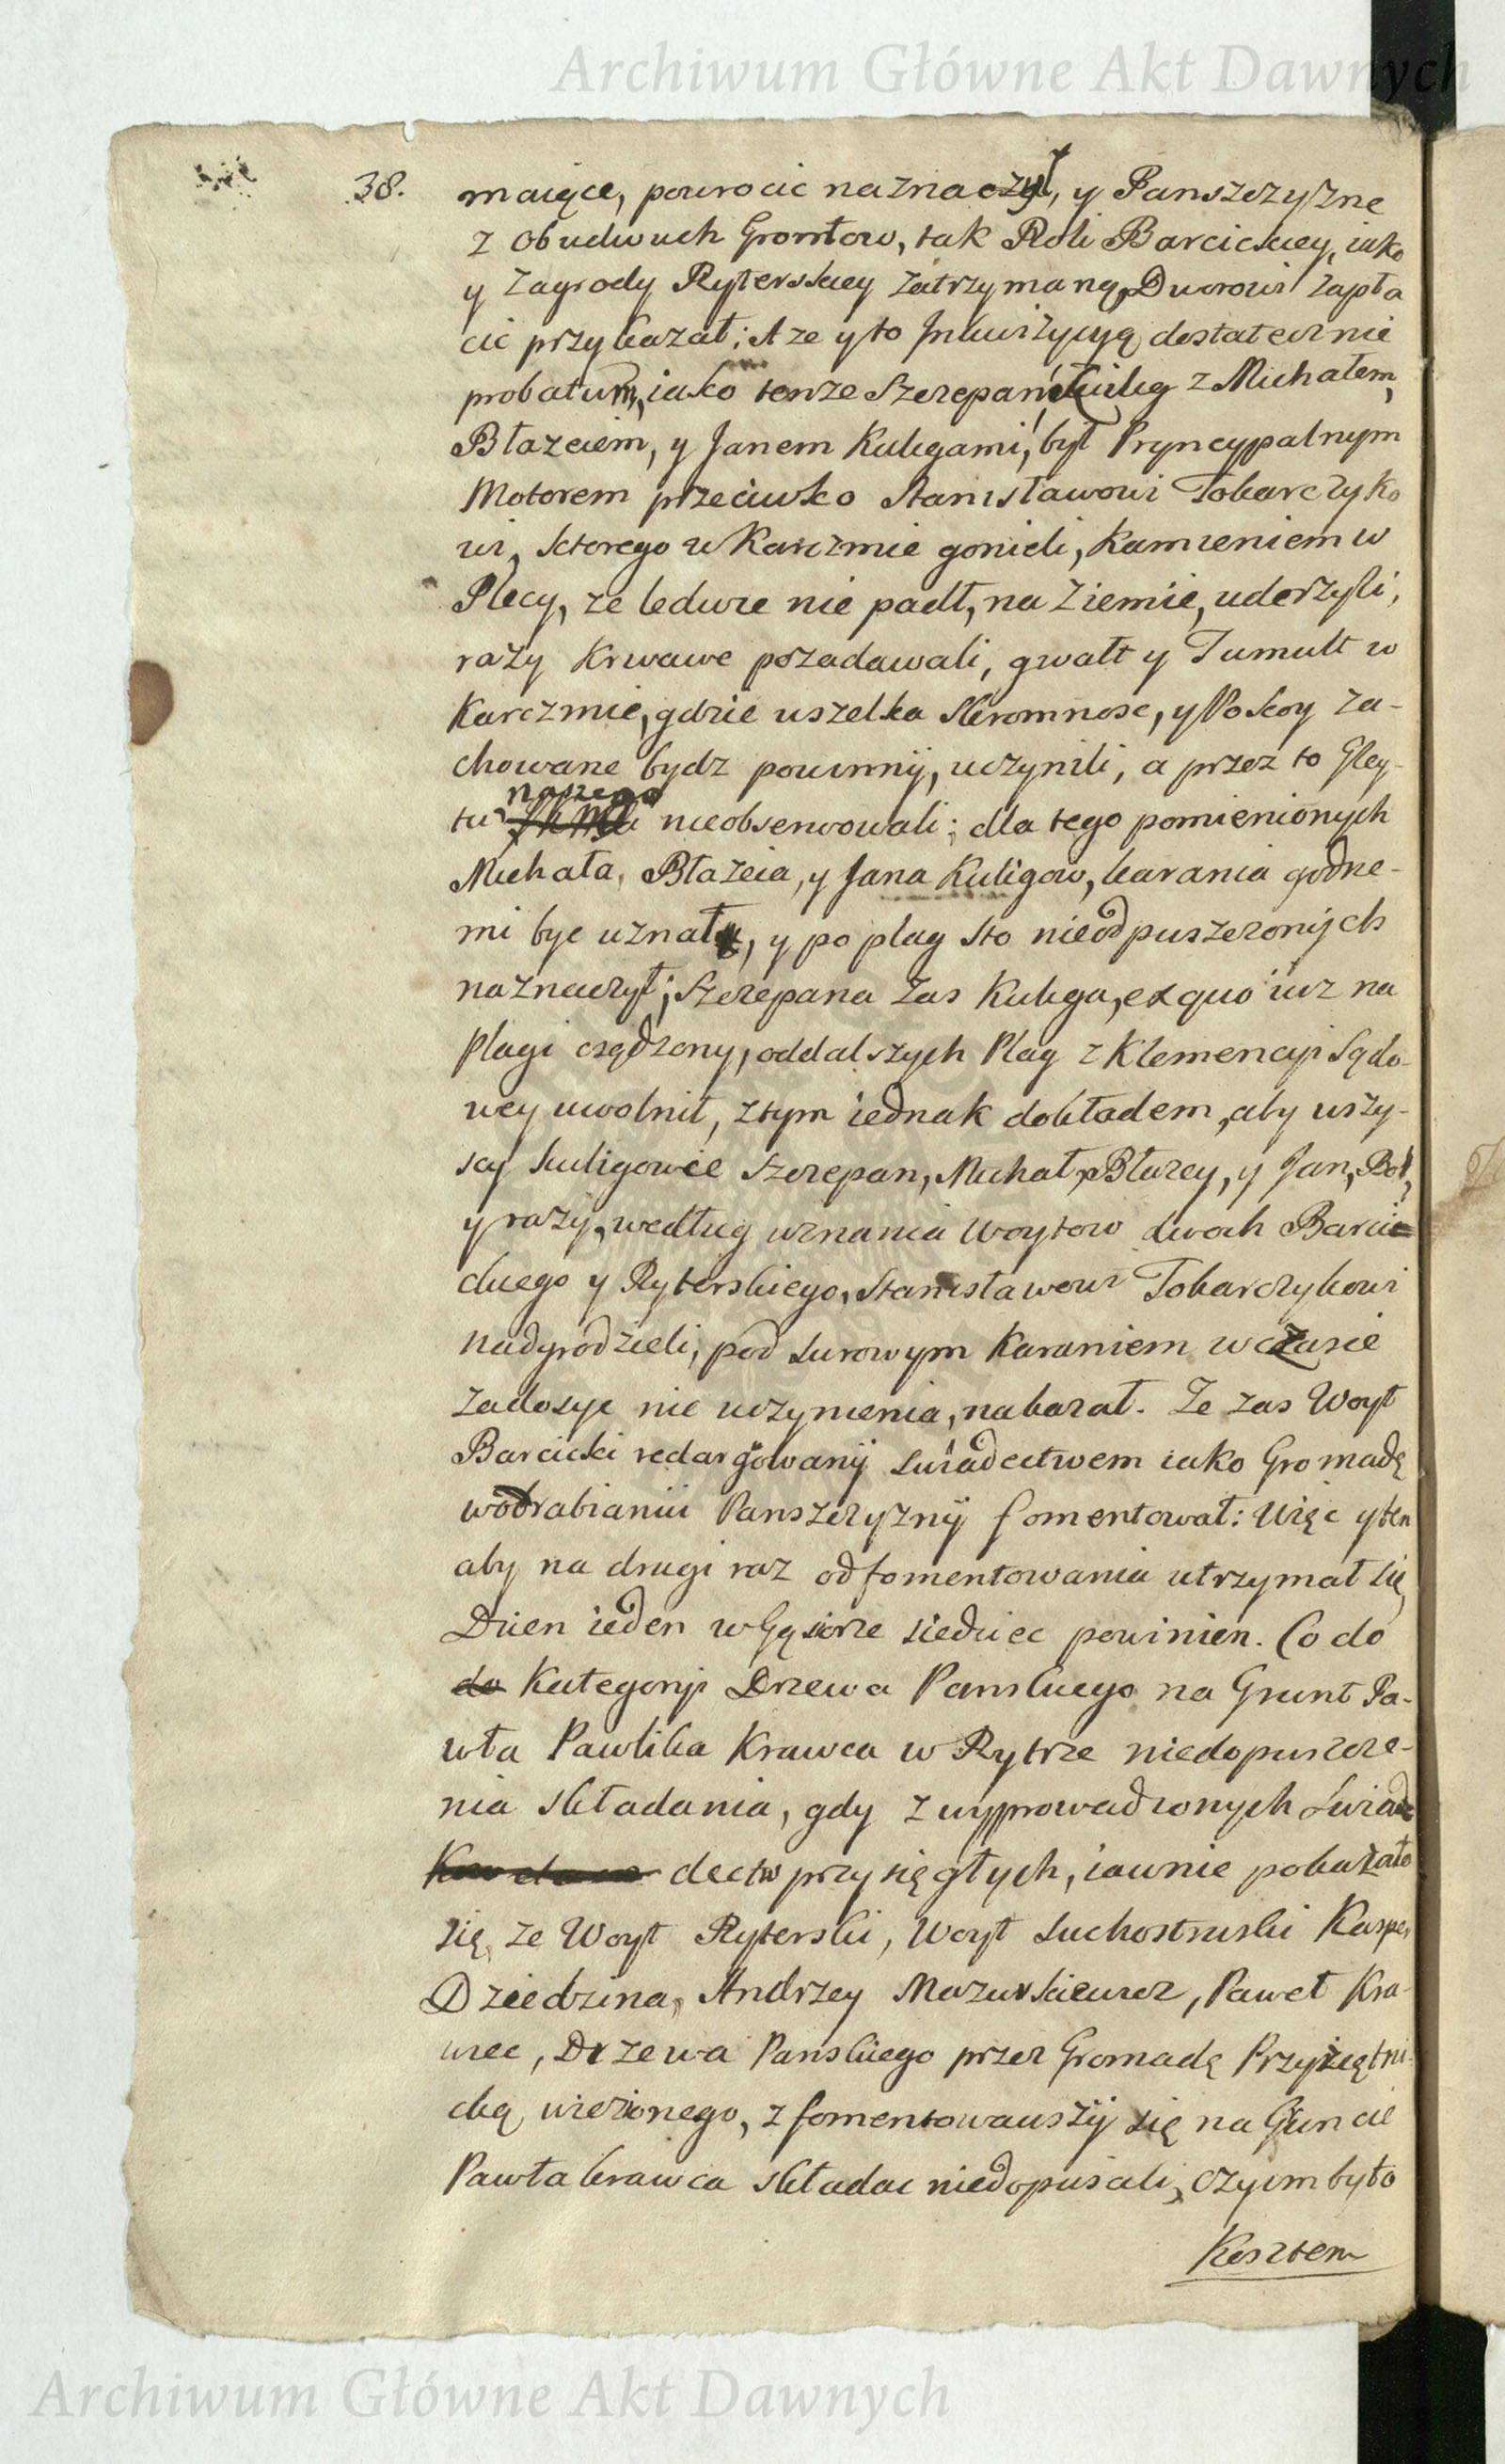 Archiwum Główne Akt Dawnych
38.
maiące, powrocic naznaczył, y Panszczyznę
z obudwuch Grontow, tak Roli Barcickiey, iako
y Zagrody Ryterskiey zatrzymaną, Dworowi zapła
cic przykazał; A ze y to Inkwizycyą dostatecznie
probatum, iako tenze Szczepan Kulig z Michałem,
Błazeiem, y Janem Kuligami, był Pryncypalnym
Motorem przeciwko Stanisławowi Tokarczyko
wi, ktorego w Karczmie gonieli, Kamieniem w
Plecy, ze ledwie nie padł, na Ziemie, uderzyli,
razy Krwawe pozadawali, gwałt y Tumult w
Karczmie, gdzie wszelka skromnosc, y Pokoy za-
chowane bydz powinny, uczynili, a przez to Gley-
tu naszego nieobserwowali; dla tego pomienionych
Michała, Błazeia, y Jana Kuligow, karania godne-
mi byc uznał, y po plag sto nieodpuszczonych
naznaczył; Szczepana zas Kuliga, ex quo iuz na
plagi osądzony, od dalszych Plag z Klemencyi Sądo-
wey uwolnił, z tym iednak dokładem, aby wszy-
scy Kuligowie Szczepan, Michał, Błazey, y Jan, Bol,
y razy, według uznania Woytow dwoch Barcic
kiego y Ryterskiego, Stanisławowi Tokarczykowi
nadgrodzieli, pod surowym Karaniem w czasie
zadosyc nie uczynienia, nakazał. Ze zas Woyt
Barcicki redargowany swiadectwem iako Gromadę
w odrabianiu Panszczyzny fomentował: Więc y ten
aby na drugi raz od fomentowania utrzymał się
Dzien ieden w Gąsiorze siedziec powinien. Co do
do Kategoryi Drzewa Panskiego na Grunt Pa-
wła Pawlika Krawca w Rytrze niedopuszcze-
nia składania, gdy z wyprowadzonych swia
dectw przysięgłych, iawnie pokazało
się, ze Woyt Ryterski, Woyt Suchostruski Kasper
Dziedzina, Andrzey Mazurkiewicz, Paweł Kra-
wiec, Drzewa Panskiego przez Gromadę Przysietni-
cką wiezionego, z fomentowawszy się na Gruncie
Pawła Krawca składac niedopuscali, czyim było
Kosztem
Archiwum Główne Akt Dawnych